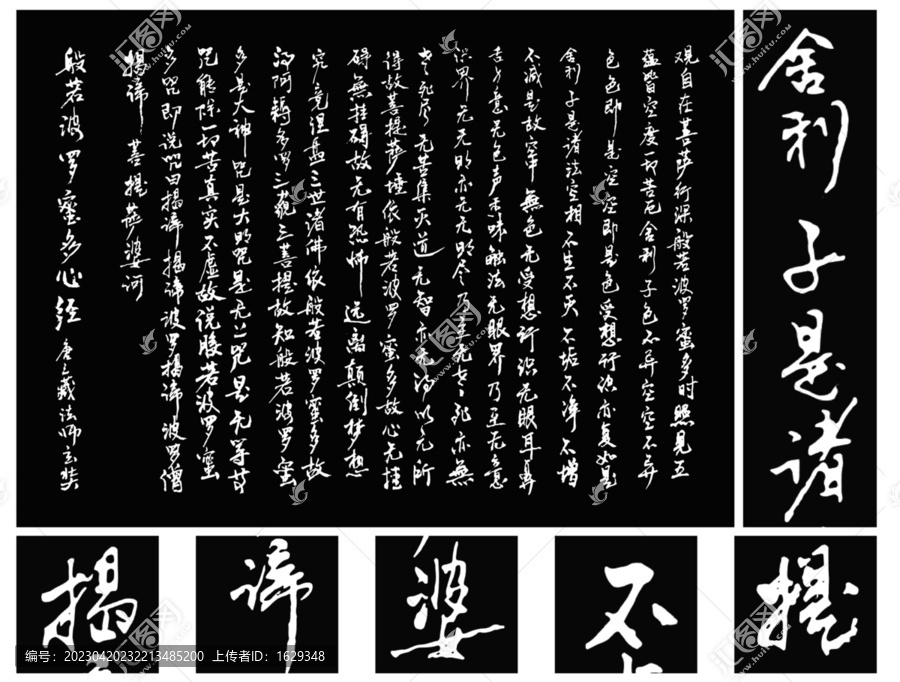 观自在菩萨行深般若波罗蜜多时照见五
蕴皆空度一切苦厄舍利子色不异空空不异
色色即是空空即是色受想行识亦复如是
舍利子是诸法空相不生不灭不垢不净不增
不减是故空中無色无受想行识无眼耳鼻
舌身意无色声香味触法无眼界乃至无意
识界无无明亦无无明尽乃至无老死亦無
老死尽无苦集灭道无智亦无得以无所
得故菩提萨埵依般若波罗蜜多故心无挂
碍無挂碍故无有恐怖远离颠倒梦想
究竟涅盘三世诸佛依般若波罗蜜多故
得阿耨多罗三藐三菩提故知般若波罗蜜
多是大神咒是大明咒是无上咒是无等等
咒能除一切苦真实不虚故说般若波罗蜜
多咒即说咒曰揭谛揭谛波罗揭谛波罗僧
揭谛菩提萨婆诃
般若波罗蜜多心经 唐三藏法师玄奘
舍利子是诸
揭
谛
婆
不
提
编号：20230420232213485200 上传者ID：1629348
汇图网
www.huitu.com